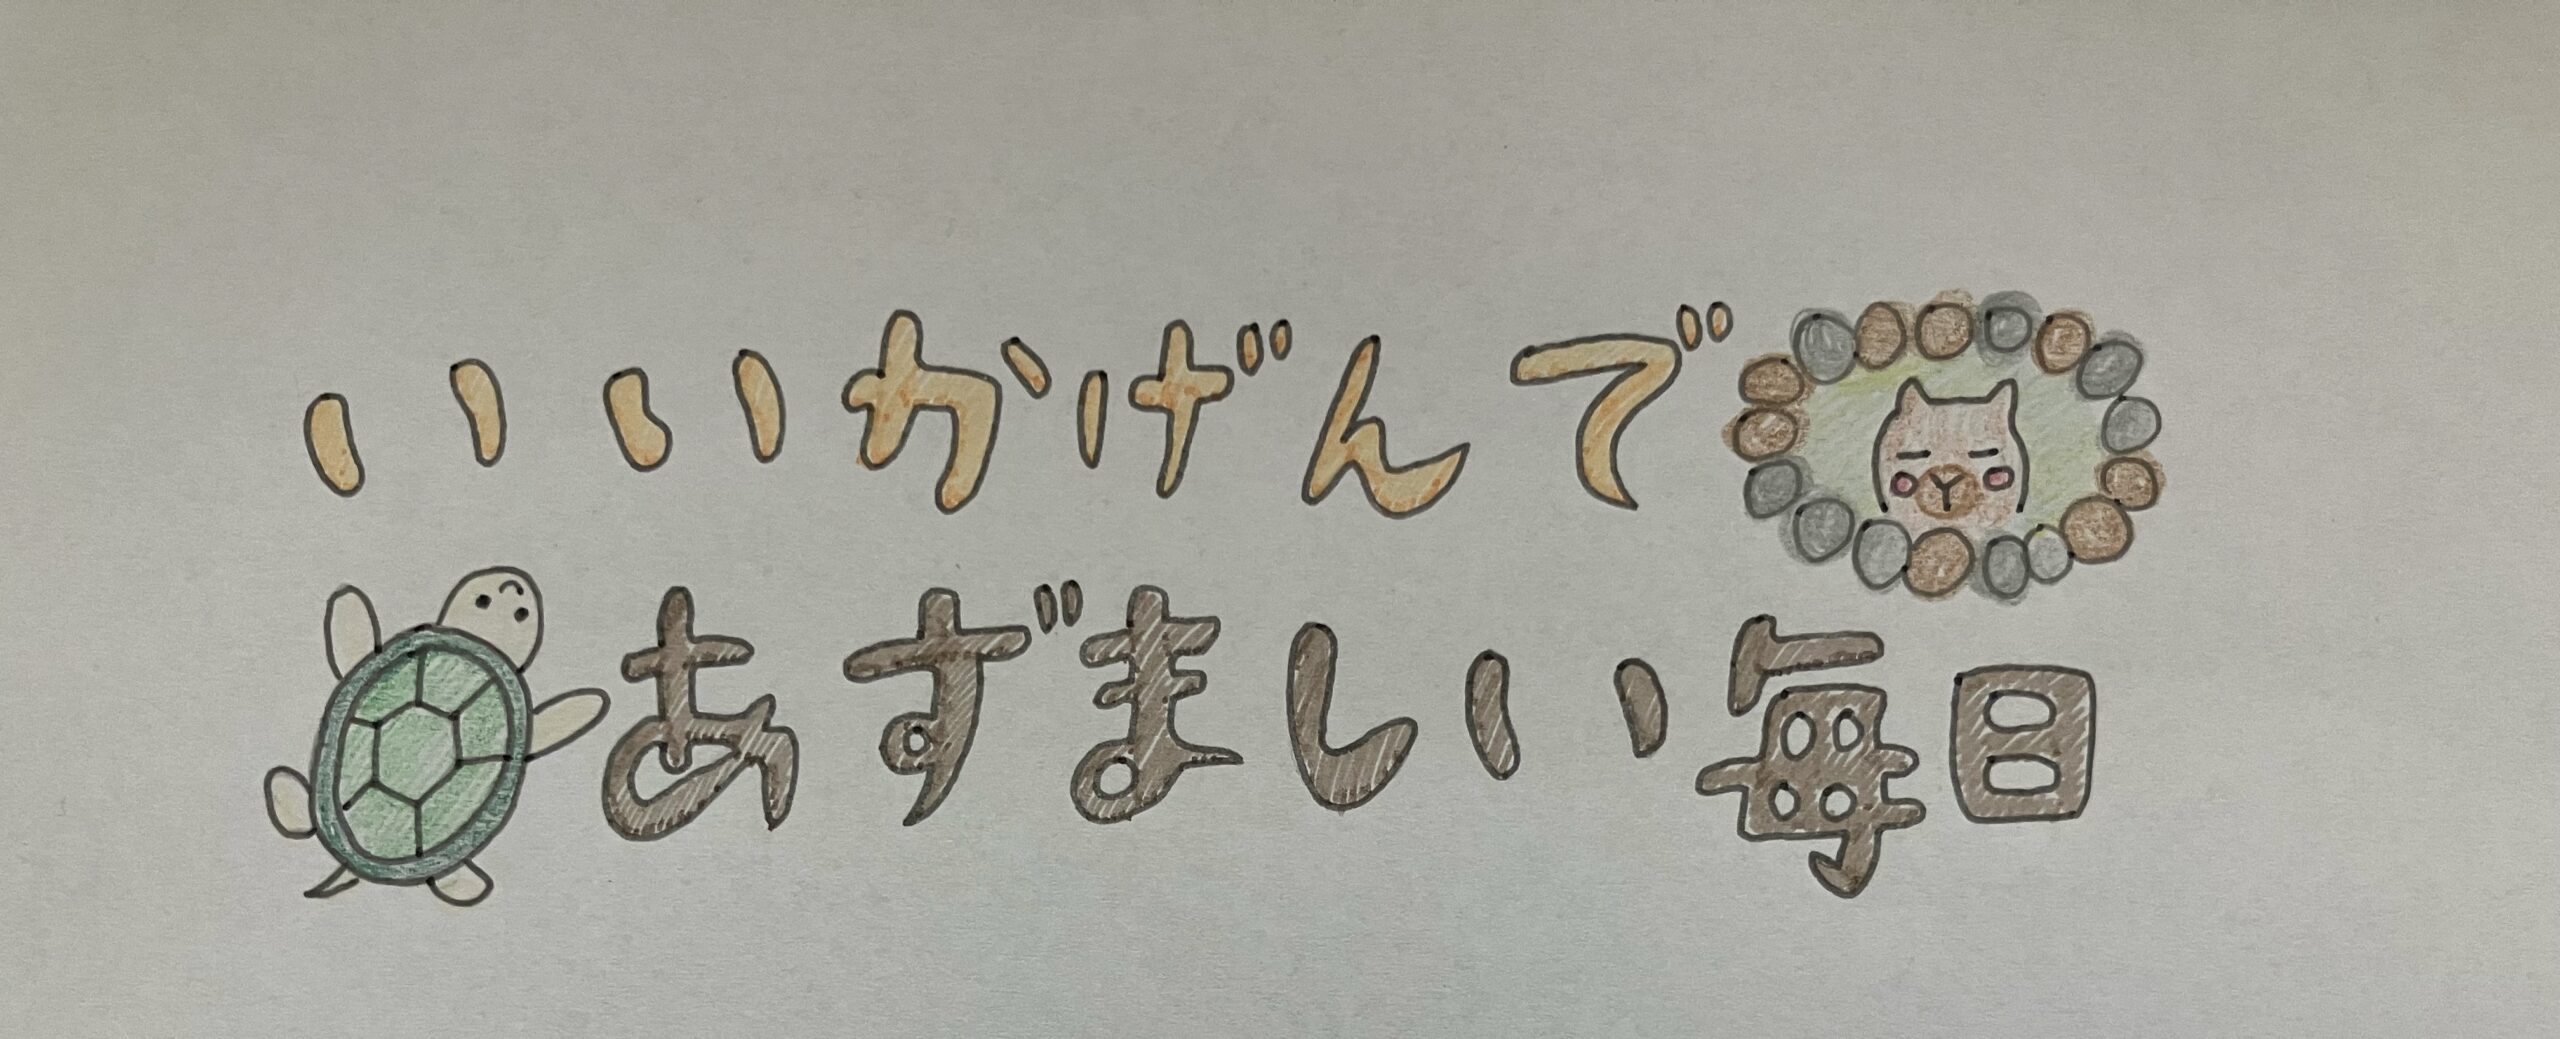 いいかげんで
あずましい毎日